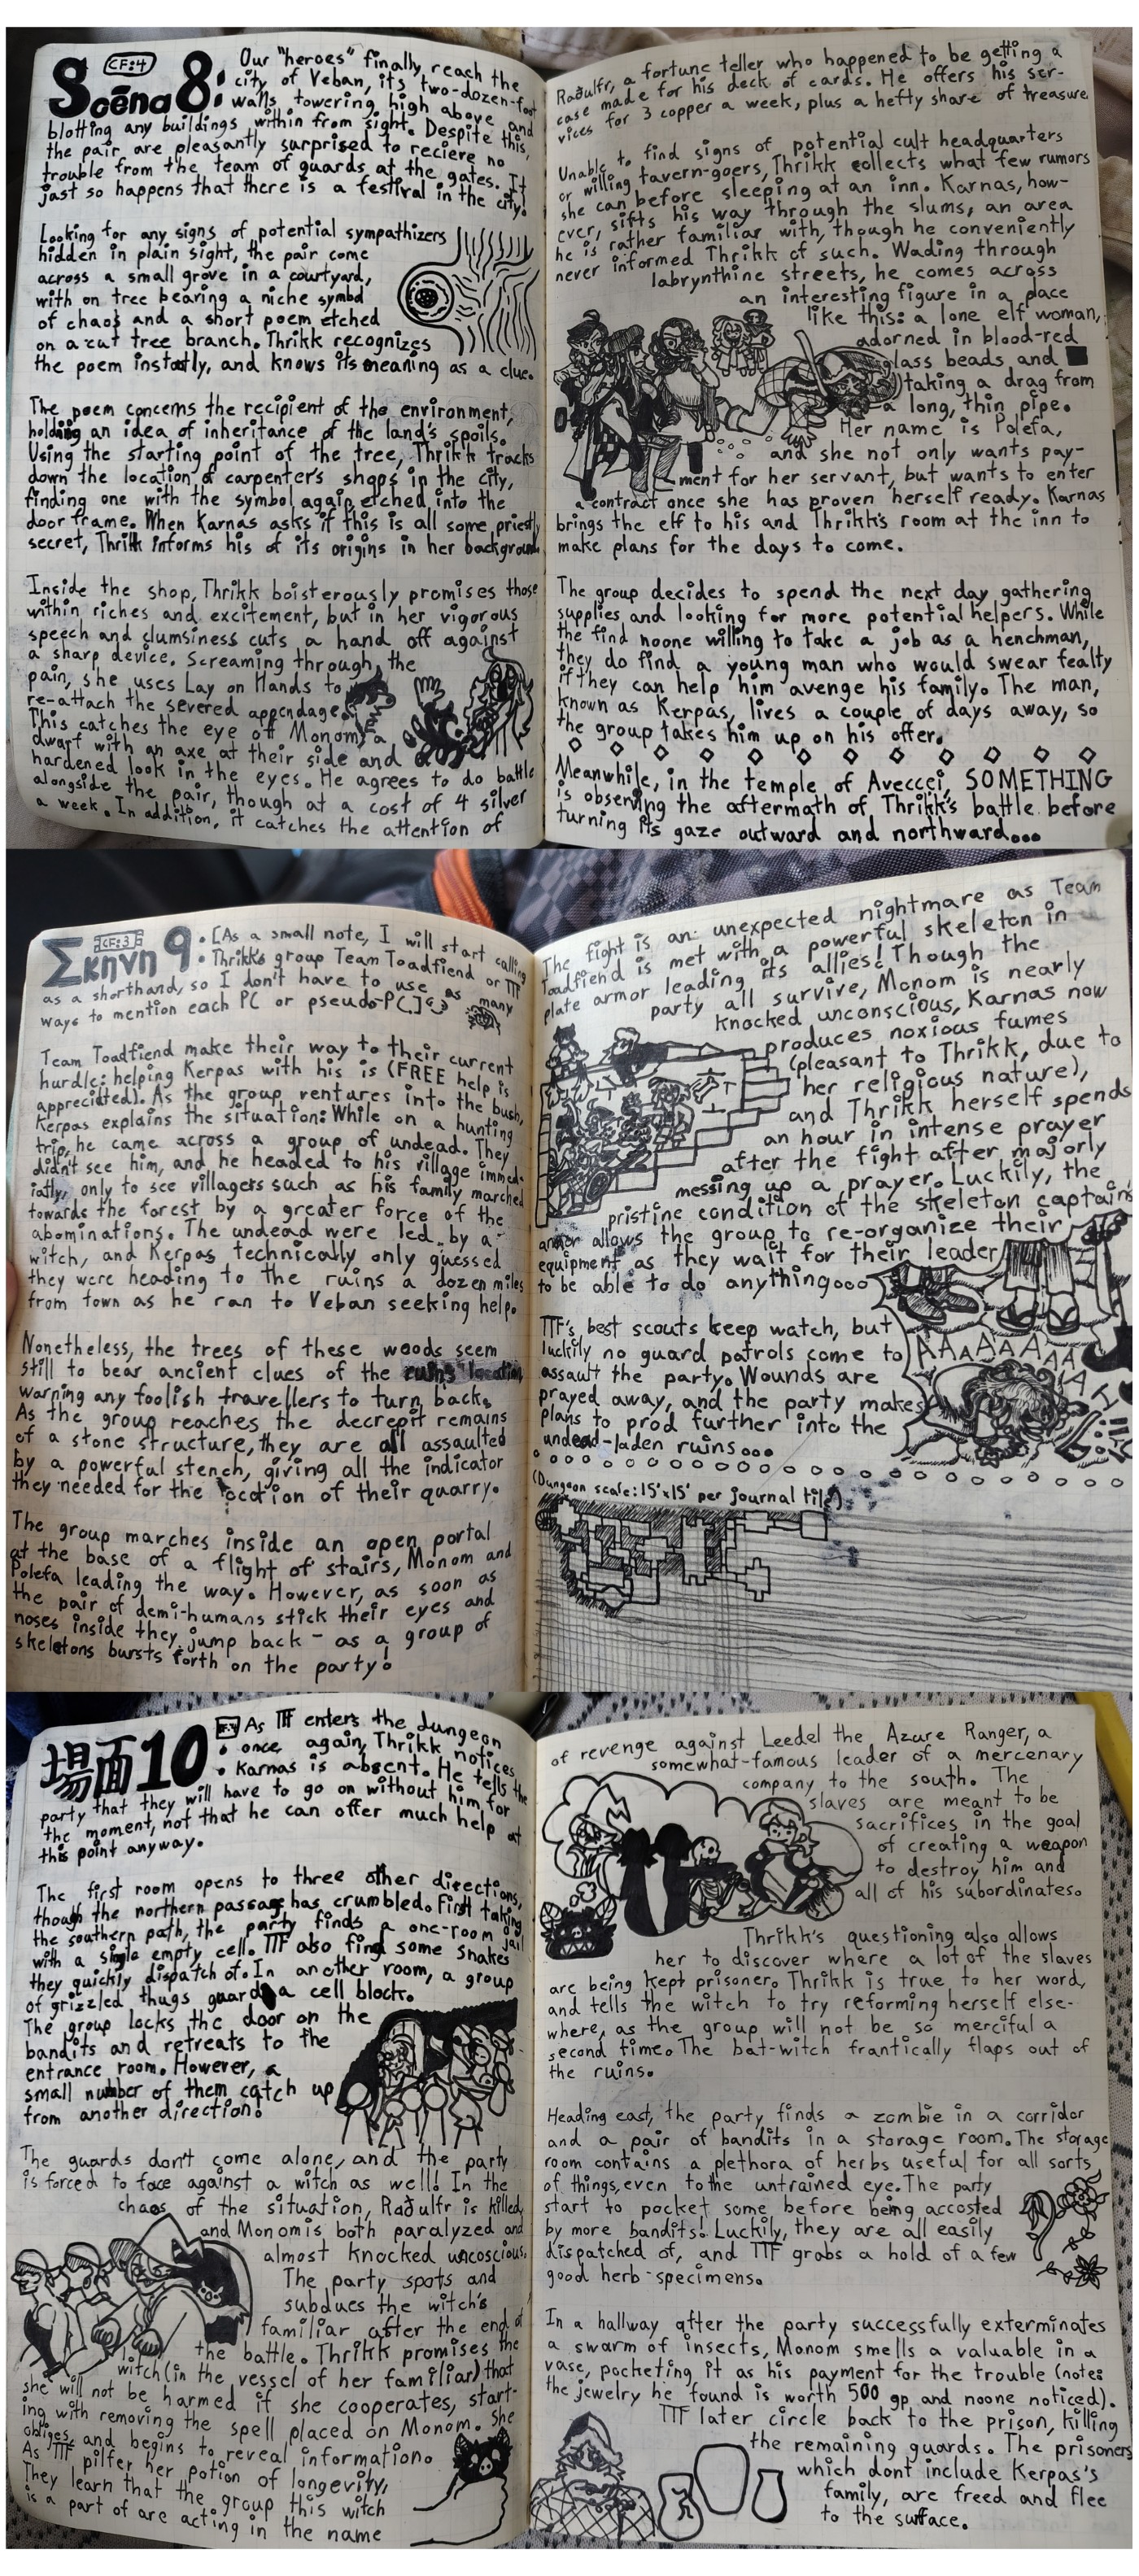 Scēna 8:
CF:4
Our "heroes" finally reach the
city of Veban, its two-dozen-foot
walls towering high above and
blotting any buildings within from sight. Despite this,
the pair are pleasantly surprised to recieve no
trouble from the team of guards at the gates. It
just so happens that there is a festival in the city!
Looking for any signs of potential sympathizers
hidden in plain sight, the pair come
across a small grove in a courtyard,
with on tree bearing a niche symbol
of chaos and a short poem etched
on a cut tree branch. Thrikk recognizes
the poem instantly, and knows its meaning as a clue.
The poem concerns the recipient of the environment,
holding an idea of inheritance of the land's spoils.
Using the starting point of the tree, Thrikk tracks
down the location of carpenter's shops in the city,
finding one with the symbol again etched into the
door frame. When Karnas asks if this is all some priestly
secret, Thrikk informs his of its origins in her background.
Inside the shop, Thrikk boisterously promises those
within riches and excitement, but in her vigorous
speech and clumsiness cuts a hand off against
a sharp device. Screaming through the
pain, she uses Lay on Hands to
re-attach the severed appendage.
This catches the eye off Monom, a
dwarf with an axe at their side and a
hardened look in the eyes. He agrees to do battle
alongside the pair, though at a cost of 4 silver
a week. In addition, it catches the attention of
Raðulfr, a fortune teller who happened to be getting a
case made for his deck of cards. He offers his ser-
vices for 3 copper a week, plus a hefty share of treasure.
Unable to find signs of potential cult headquarters
or willing tavern-goers, Thrikk collects what few rumors
she can before sleeping at an inn. Karnas, how-
ever, sifts his way through the slums, an area
he is rather familiar with, though he conveniently
never informed Thrikk of such. Wading through
labrynthine streets, he comes across
an interesting figure in a place
like this: a lone elf woman,
adorned in blood-red
glass beads and
taking a drag from
a long, thin pipe.
Her name is Polefa,
and she not only wants pay-
ment for her servant, but wants to enter
a contract once she has proven herself ready. Karnas
brings the elf to his and Thrikk's room at the inn to
make plans for the days to come.
The group decides to spend the next day gathering
supplies and looking for more potential helpers. While
the find noone willing to take a job as a henchman,
they do find a young man who would swear fealty
if they can help him avenge his family. The man,
known as Kerpas, lives a couple of days away, so
the group takes him up on his offer.
Meanwhile, in the temple of Aveccei, SOMETHING
is observing the aftermath of Thrikk's battle before
turning its gaze outward and northward...
Σκηνη 9:
CF:3
[As a small note, I will start calling
Thrikk's group Team Toadfiend or TTF
as a shorthand, so I don't have to use as many
ways to mention each PC or pseudo-PC.]
Team Toadfiend make their way to their current
hurdle: helping Kerpas with his is (FREE help is
appreciated). As the group ventures into the bush,
Kerpas explains the situation: While on a hunting
trip, he came across a group of undead. They
didn't see him, and he headed to his village immed-
iatly, only to see villagers such as his family marched
towards the forest by a greater force of the
abominations. The undead were led by a
witch, and Kerpas technically only guessed
they were heading to the ruins a dozen miles
from town as he ran to Veban seeking help.
Nonetheless, the trees of these woods seem
still to bear ancient clues of the ruins' location,
warning any foolish travellers to turn back.
As the group reaches the decrepit remains
of a stone structure, they are all assaulted
by a powerful stench, giving all the indicator
they needed for the location of their quarry.
The group marches inside an open portal
at the base of a flight of stairs, Monom and
Polefa leading the way. However, as soon as
the pair of demi-humans stick their eyes and
noses inside they jump back - as a group of
skeletons bursts forth on the party!
The fight is an unexpected nightmare as Team
Toadfiend is met with a powerful skeleton in
plate armor leading its allies! Though the
party all survive, Monom is nearly
knocked unconscious, Karnas now
produces noxious fumes
(pleasant to Thrikk, due to
her religious nature),
and Thrikk herself spends
an hour in intense prayer
after the fight after majorly
messing up a prayer. Luckily, the
pristine condition of the skeleton captain's
armor allows the group to re-organize their
equipment as they wait for their leader
to be able to do anything...
TTF's best scouts keep watch, but
luckily no guard patrols come to
assault the party. Wounds are
prayed away, and the party makes
plans to prod further into the
undead-laden ruins...
AAAAAAAA
(Dungeon scale: 15'x15' per journal tile)
場面10:
CF:4
As TTF enters the dungeon
once again, Thrikk notices
Karnas is absent. He tells the
party that they will have to go on without him for
the moment, not that he can offer much help at
this point anyway.
The first room opens to three other directions,
though the northern passage has crumbled. First taking
the southern path, the party finds a one-room jail
with a single empty cell. TTF also find some snakes
they quickly dispatch of. In another room, a group
of grizzled thugs guard a cell block.
The group locks the door on the
bandits and retreats to the
entrance room. However, a
small number of them catch up
from another direction!
The guards don't come alone, and the party
is forced to face against a witch as well! In the
chaos of the situation, Raðulfr is killed,
and Monom is both paralyzed and
almost knocked uncoscious.
The party spots and
subdues the witch's
familiar after the end of
the battle. Thrikk promises the
witch (in the vessel of her familiar) that
she will not be harmed if she cooperates, start-
ing with removing the spell placed on Monom. She
obliges, and begins to reveal information.
As TTF pilfer her potion of longevity,
They learn that the group this witch
is a part of are acting in the name
of revenge against Leedel the Azure Ranger, a
somewhat-famous leader of a mercenary
company to the south. The
slaves are meant to be
sacrifices in the goal
of creating a weapon
to destroy him and
all of his subordinates.
Thrikk's questioning also allows
her to discover where a lot of the slaves
are being kept prisoner. Thrikk is true to her word,
and tells the witch to try reforming herself else-
where, as the group will not be so merciful a
second time. The bat-witch frantically flaps out of
the ruins.
Heading east, the party finds a zombie in a corridor
and a pair of bandits in a storage room. The storage
room contains a plethora of herbs useful for all sorts
of things, even to the untrained eye. The party
start to pocket some before being accosted
by more bandits! Luckily, they are all easily
dispatched of, and TTF grabs a hold of a few
good herb-specimens.
In a hallway after the party successfully exterminates
a swarm of insects, Monom smells a valuable in a
vase, pocketing it as his payment for the trouble (note:
the jewelry he found is worth 500 gp and noone noticed).
TTF later circle back to the prison, killing
the remaining guards. The prisoners
which dont include Kerpas's
family, are freed and flee
to the surface.